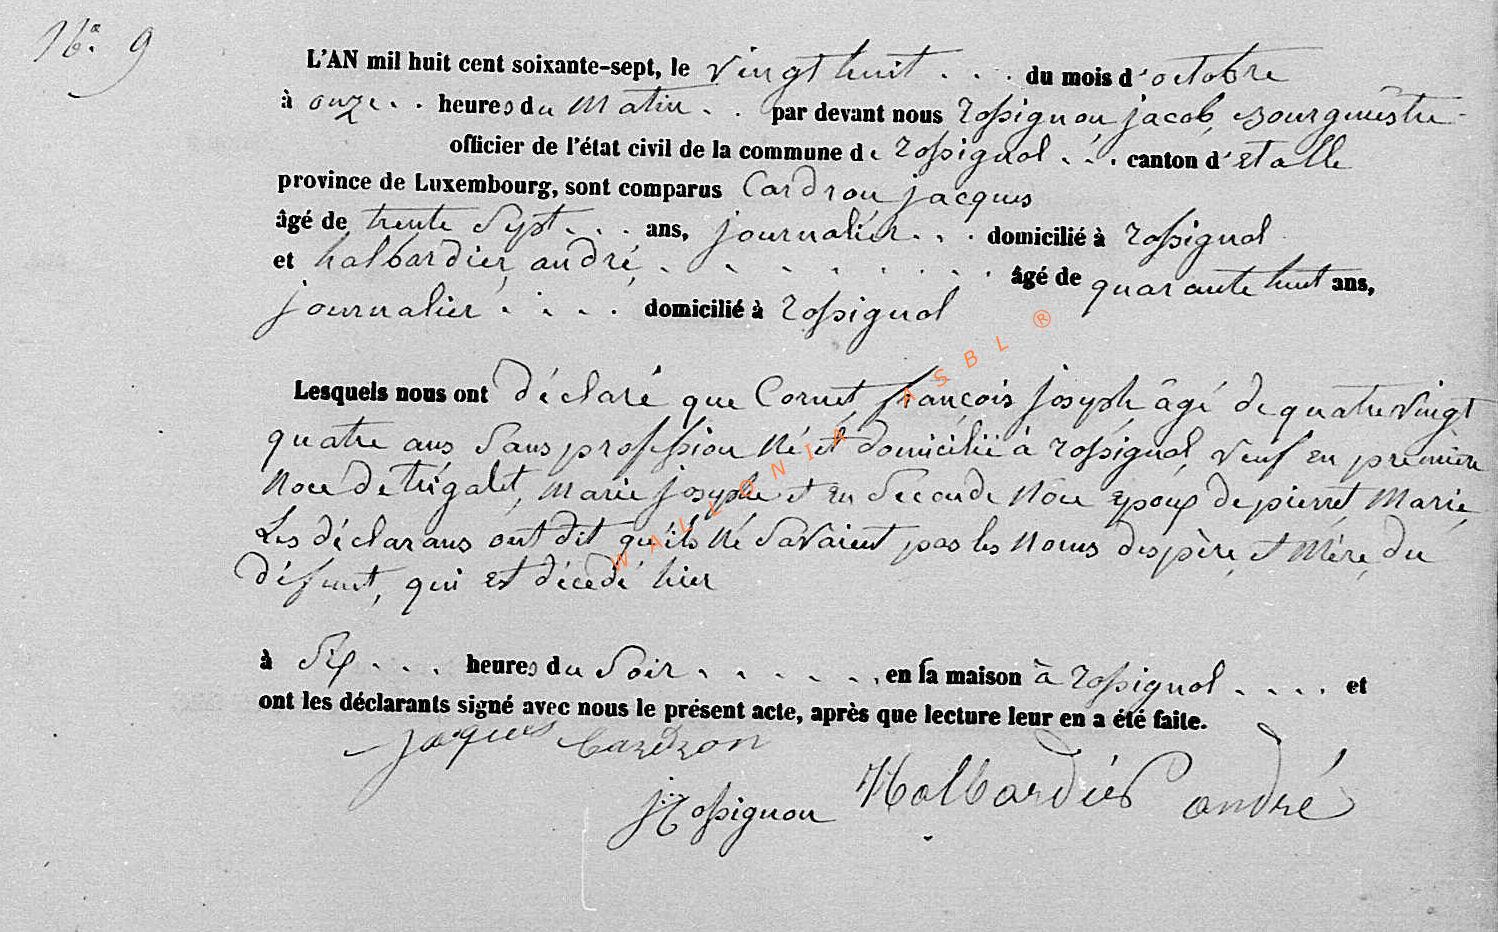 N° 9
L'AN mil huit cent soixante-sept, le vingt huit . . . du mois d'octobre
à onze . . heures du matin . . par devant nous Rossignon, jacob, Bourgmestre
officier de l'état civil de la commune de Rossignol . . . canton d'Etalle
province de Luxembourg, sont comparus Cardron jacques
âgé de trente Sept . . . ans, journalier . . . domicilié à Rossignol
et halbardier, andré, . . . . . . . . âgé de quarante huit ans,
journalier . . . . domicilié à Rossignol
Lesquels nous ont déclaré que Cornet, françois joseph âgé de quatre vingt
quatre ans Sans profession Né et domicilié à Rossignol, Veuf en première
Noce de trégalet, Marie josephe et en Seconde Noce epoux de pierret, Marie,
Les déclarans ont dit qu'ils Ne Savaient pas les Noms des père, et Mère, du
défunt, qui est décédé hier
à Six . . . heures du Soir . . . . . . en sa maison à Rossignol . . . . et
ont les déclarants signé avec nous le présent acte, après que lecture leur en a été faite.
jaques Cardron
J Rossignon Halbardier andré
WALLONIA ASBL ®